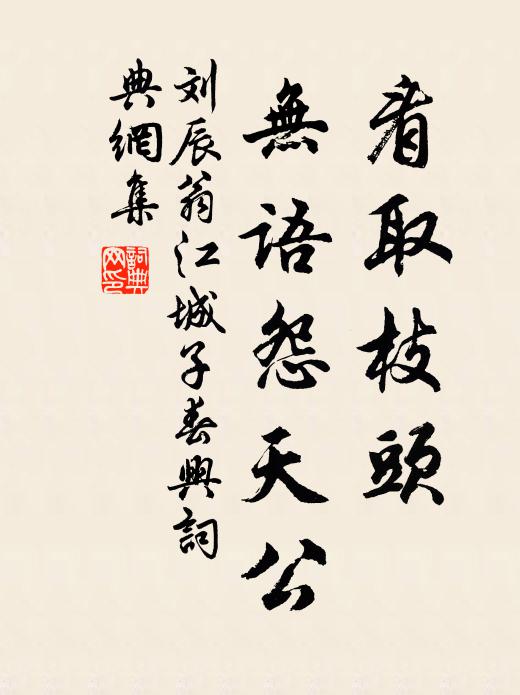 看取枝頭
無語怨天公
刘辰翁江城子春興詞
典網集
詞典
网印